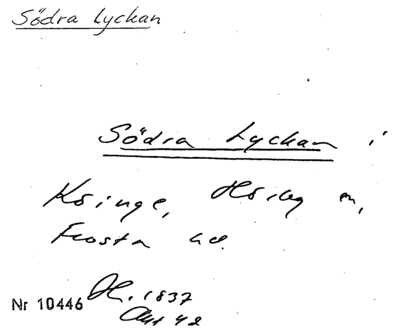 Södra Lyckan
Södra Lyckan i
Kringe, Hörby sn,
Frosta hd.
Nr 10446 H. 1837
Akt 42